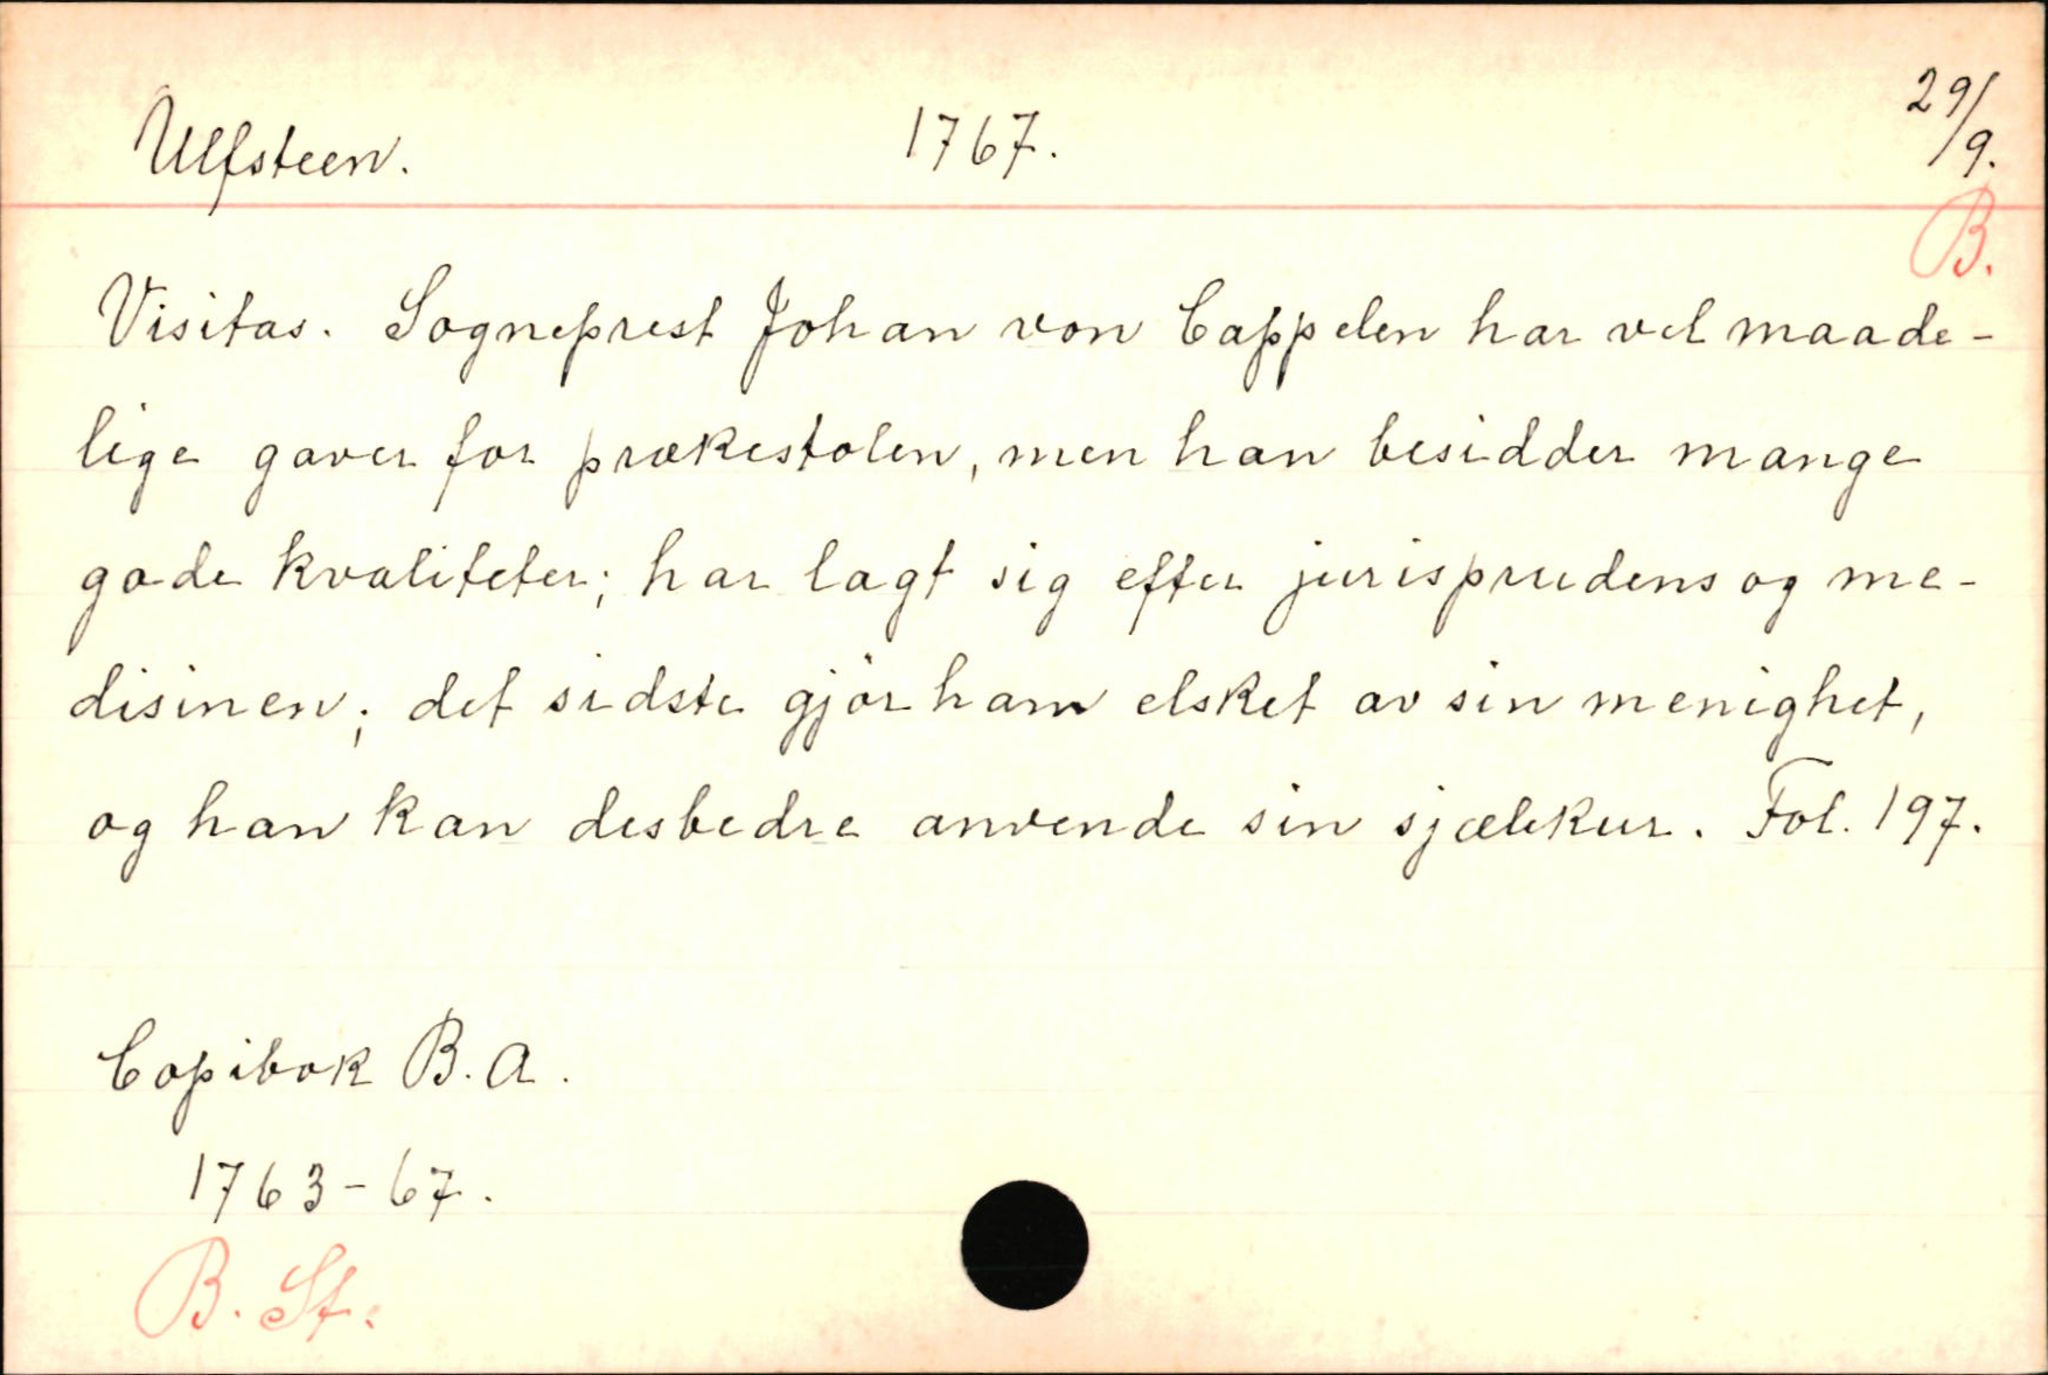 Ulfsteen. 1767. 29/9.
B.
Visitas. Sogneprest Johan von Cappelen har vel maade-
lige gaver for prækestolen, men han besidder mange
gode kvaliteter; har lagt sig efter jurisprudens og me-
disinen; det sidste gjör ham elsket av sin menighet,
og han kan desbedre anvende sin sjælekur. Fol. 197.
Copibok B.A.
1763-67.
B. St.